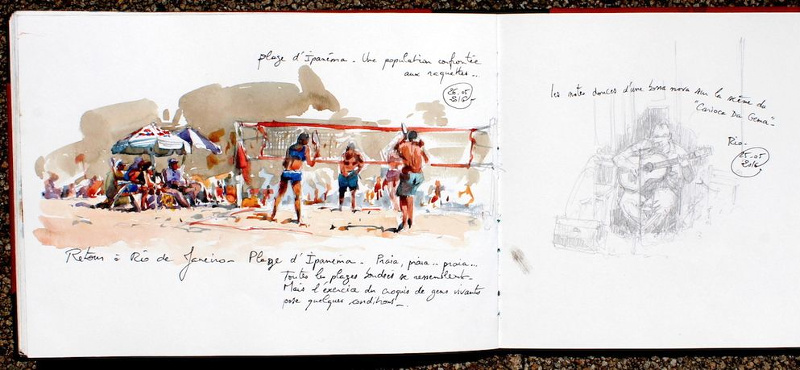 plage d'Ipanéma. Une population confrontée
aux raquettes..
26.05
Retour à Rio de Janeiro. Plage d'Ipanéma. Praia, praia.. praia...
Toutes les plages se ressemblent.
Mais l'exercice du croquis de gens vivants
pose quelques conditions..
Les notes douces d'une bossa nova sur la scène du
"Carioca Da Gema".
Rio.
25.05